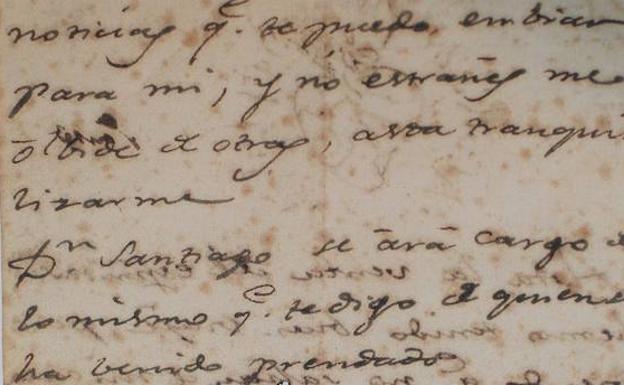 noticias q.e te puedo embiar
para mi, y nó estrañes me
ólbide de otras, asta tranqui
lizarme
Dn Santiago se ará cargo de
lo mismo q.e te digo de quien
ha venido prendado